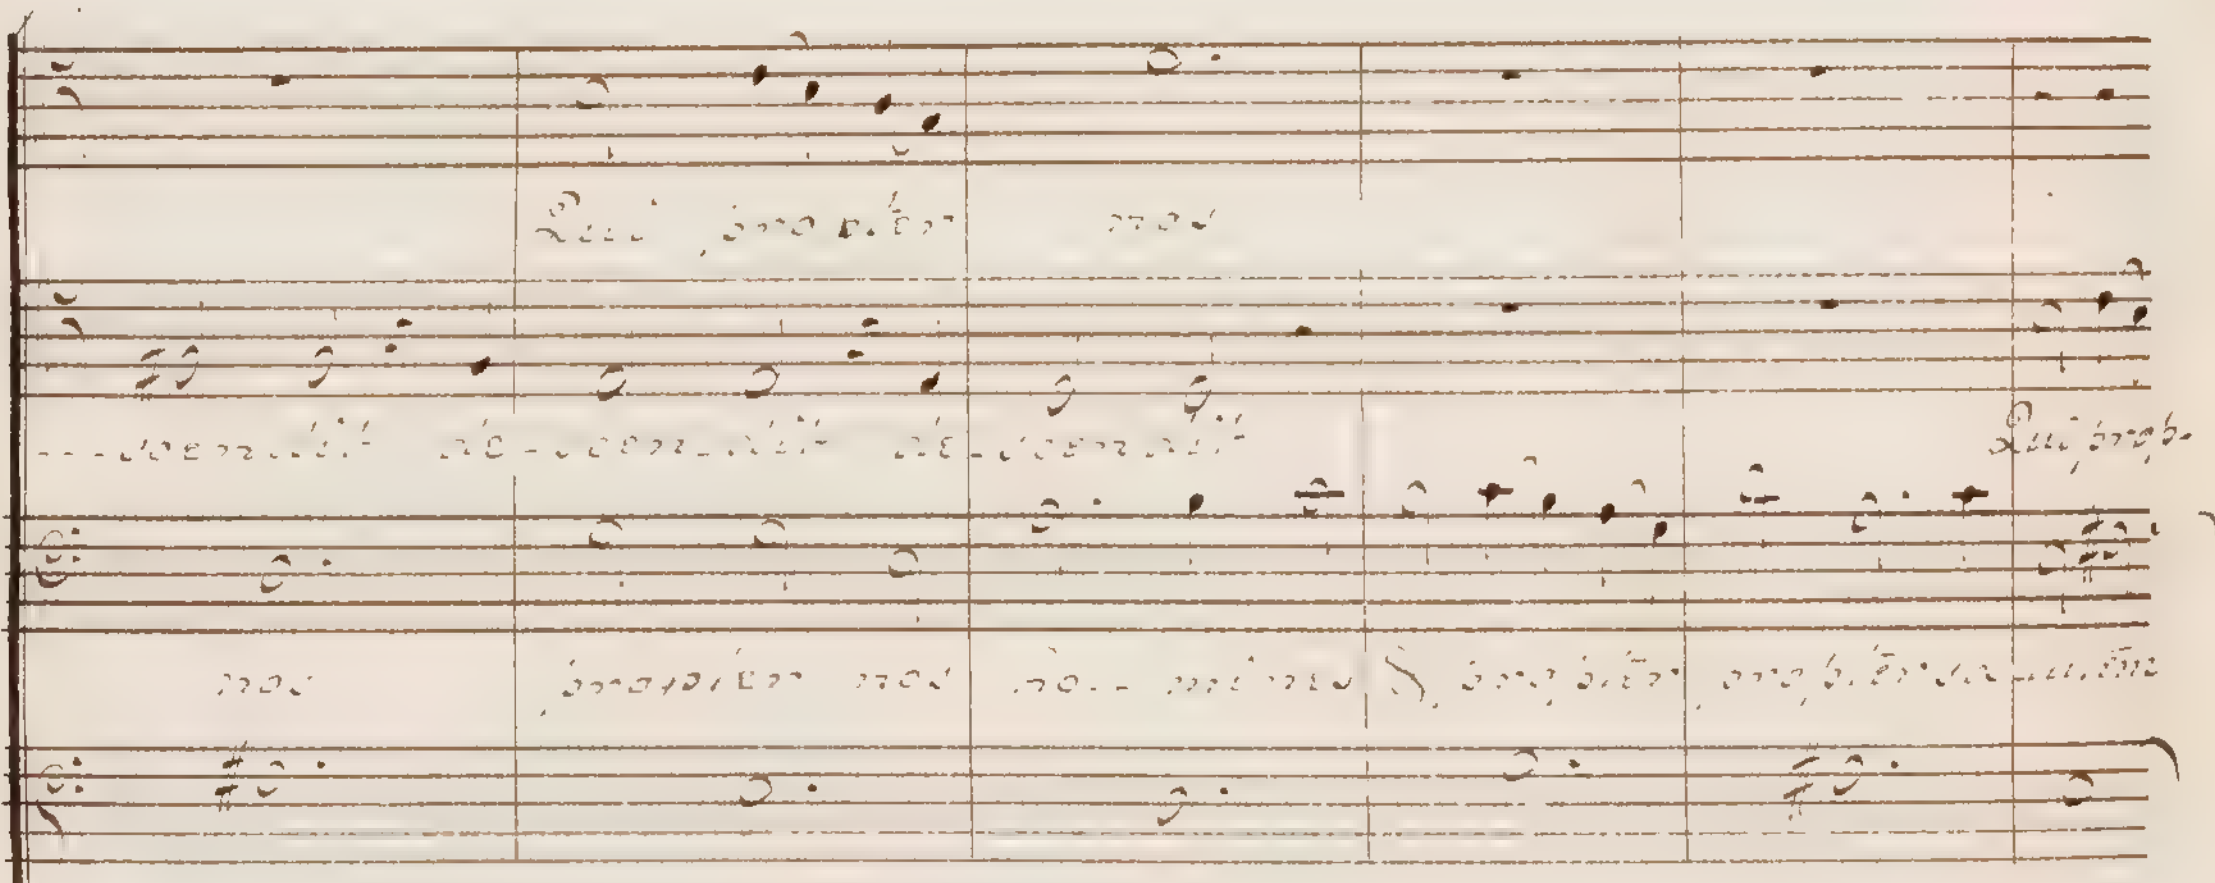 Qui propter nos
---scendit de-scendit de-scendit Qui prop-
nos propter nos ho-- mines & propter propter sa-lutem